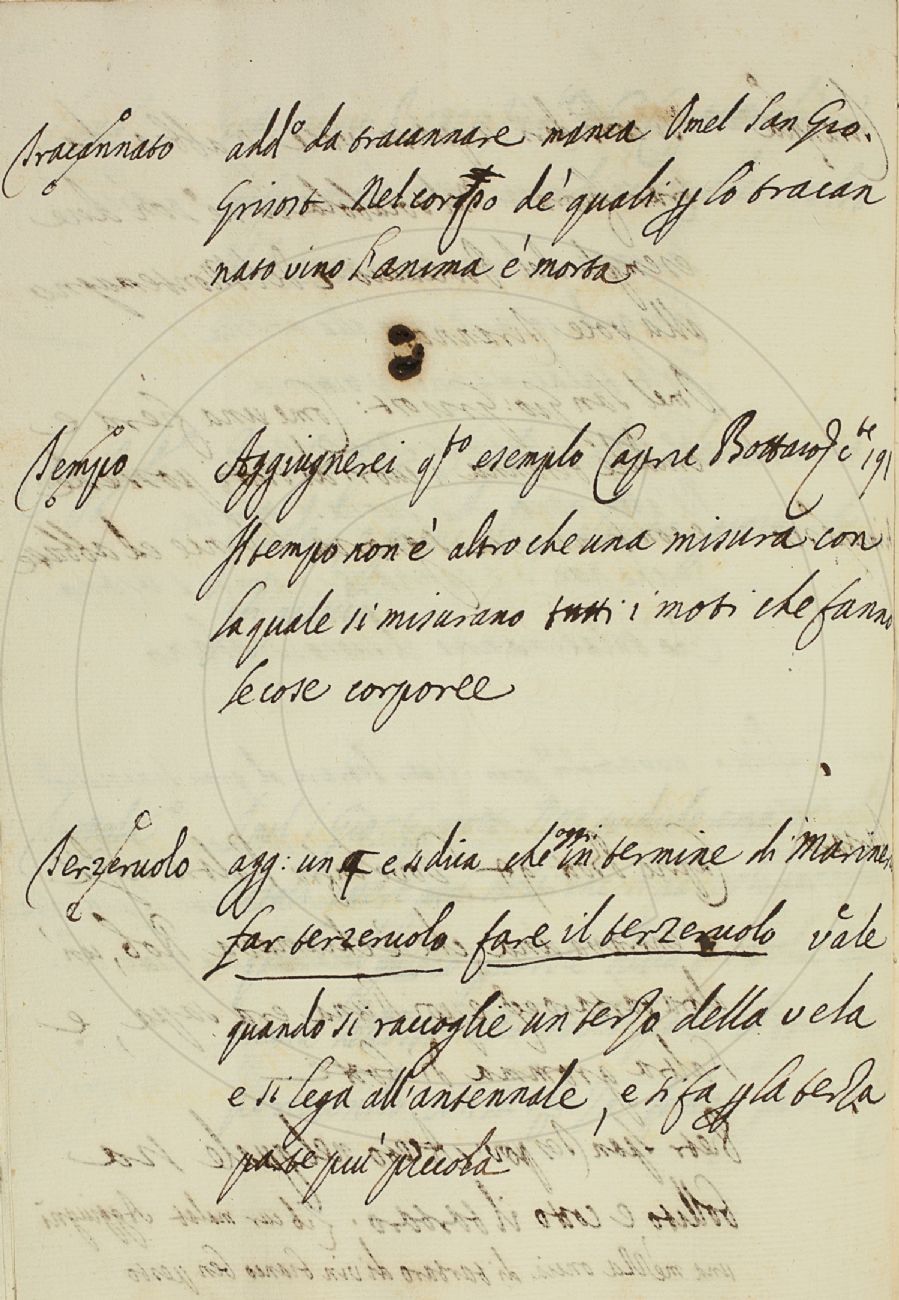 Tracannato add.o da tracannare manca Omel San Gio.
Grisost Nel corpo de' quali p lo tracan
nato vino l'anima é morta
Tempo Aggiugnerei q.to esempio Capric Bottaio c.te 191
Il tempo non é altro che una misura con
la quale si misurano tutti i moti che fanno
le cose corporee
Terzeruolo agg: un e si dica che oggi in termine di Marine
far terzeruolo fare il terzeruolo vale
quando si raccoglie un terzo della vela
e si lega all'antennale, e si fa p la terza
parte piú piccola